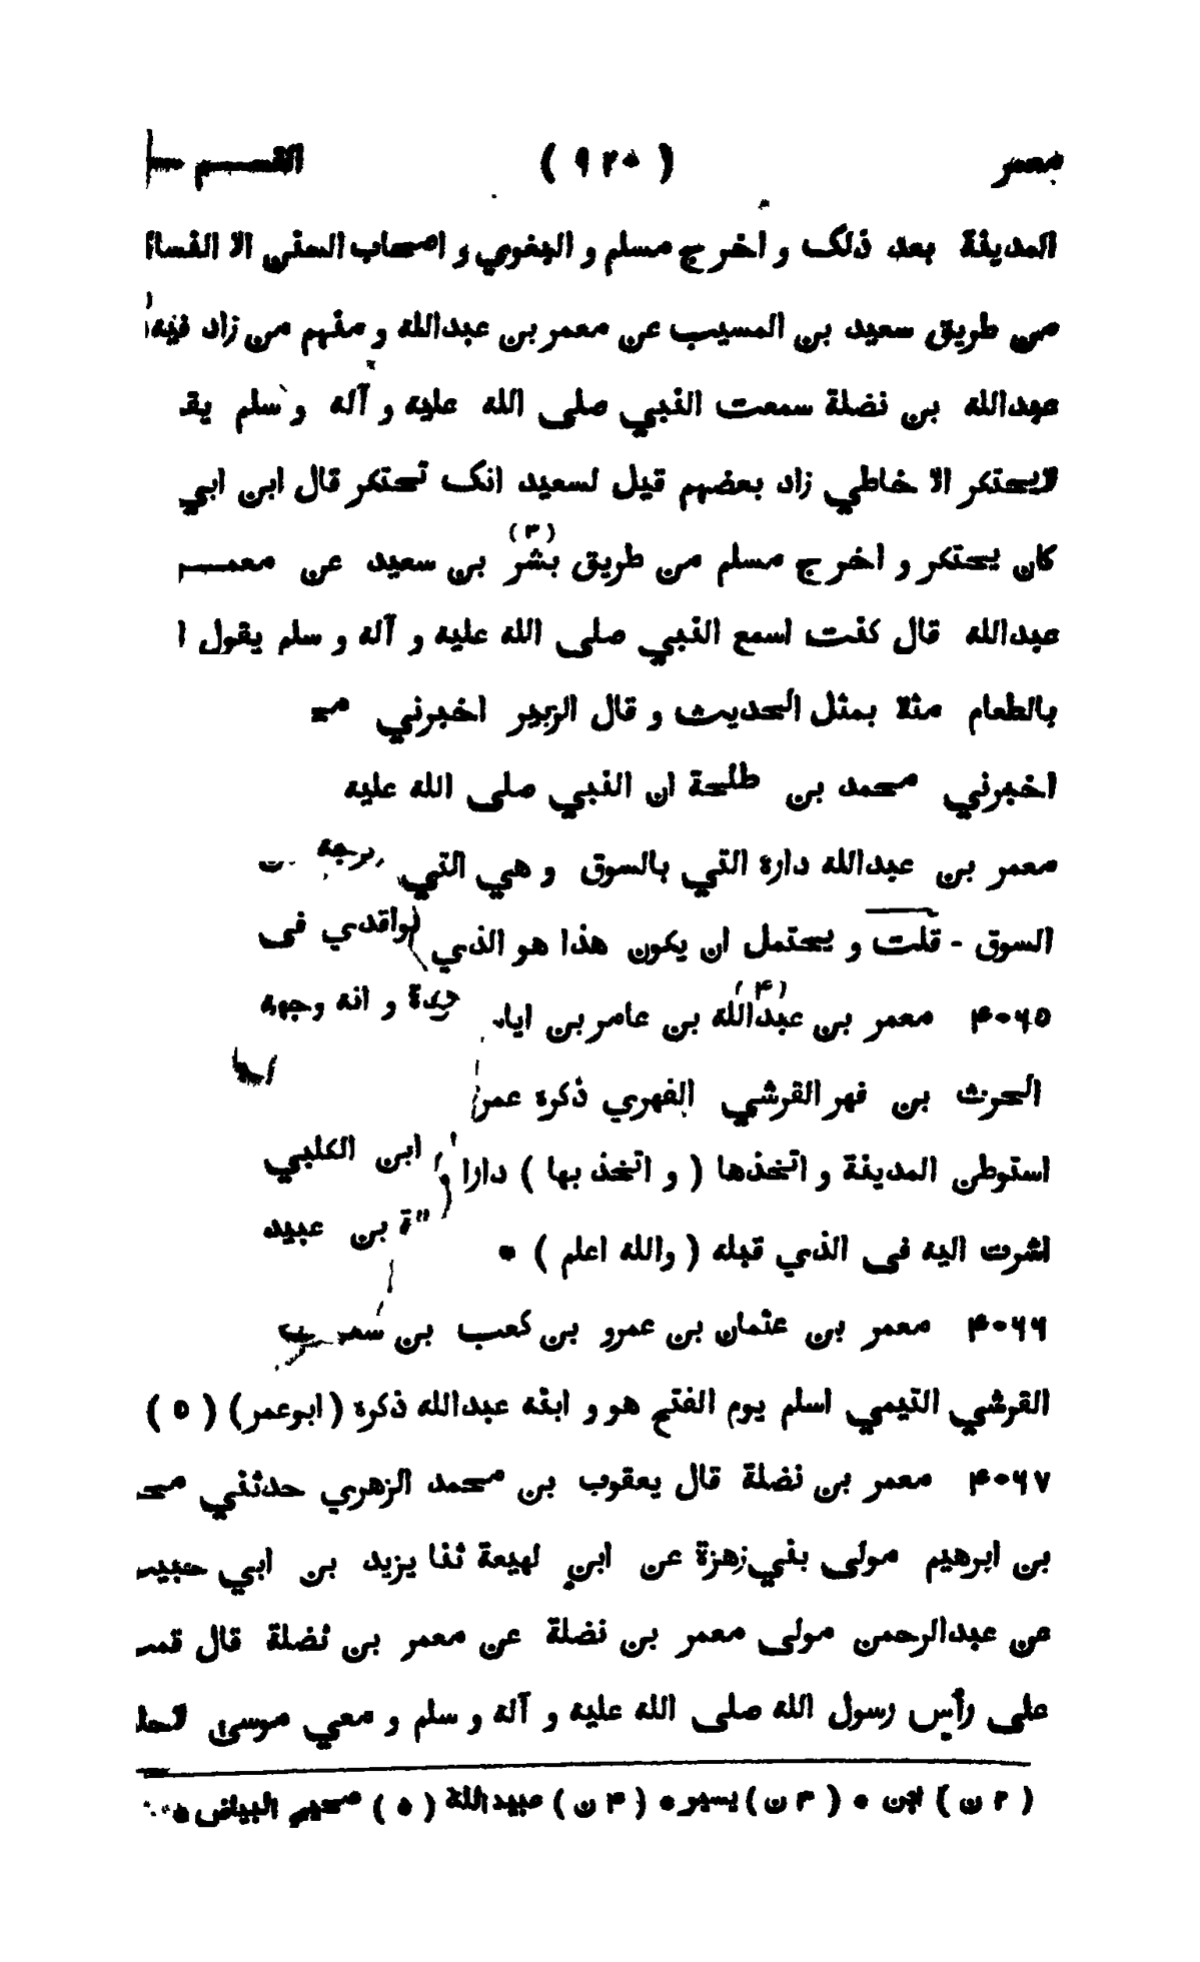 معمر ( ٩٢٠ ) القسم
المدينة بعد ذلک و اخرج مسلم و البغوي و اصحاب السنن الا النسا
من طريق سعيد بن المسيب عن معمر بن عبدالله و منهم من زاد فيه
عبدالله بن نضلة سمعت النبي صلى الله عليه و آله و سلم يقـ
لايحتكر الا خاطي زاد بعضهم قيل لسعيد انک تحتكر قال ابن ابي
كان يحتكر و اخرج مسلم من طريق بشر (٣) بن سعيد عن معمـ
عبدالله قال كنت اسمع النبي صلى الله عليه و آله و سلم يقول ا
بالطعام مثلا بمثل الحديث و قال الزبير اخبرني محـ
اخبرني محمد بن طلحة ان النبي صلى الله عليه
معمر بن عبدالله داره التي بالسوق و هي التي
السوق - قلت و يحتمل ان يكون هذا هو الذي لواقدي فى
٤٠٦٥ معمر بن عبدالله (٤) بن عامر بن ايا و انه وجهه
الحرث بن فهر القرشي الفهري ذكره عمر
استوطن المدينة و اتخذها ( و اتخذ بها ) دارا ابن الكلبي
اشرت اليه فى الذي قبله ( والله اعلم ) * ة بن عبيد
٤٠٦٦ معمر بن عثمان بن عمرو بن كعب بن سعد
القرشي التيمي اسلم يوم الفتح هو و ابنه عبدالله ذكره ( ابوعمر ) ( ٥ )
٤٠٦٧ معمر بن نضلة قال يعقوب بن محمد الزهري حدثني محـ
بن ابرهيم مولى بني زهرة عن ابن لهيعة ثنا يزيد بن ابي حبيب
عن عبدالرحمن مولى معمر بن نضلة عن معمر بن نضلة قال قمت
على رأس رسول الله صلى الله عليه و آله و سلم و معي موسى لاحلـ
( ٢ ن ) ابن * ( ٣ ن ) يسير * ( ٤ ن ) عبيدالله ( ٥ ) صحيح البياض *